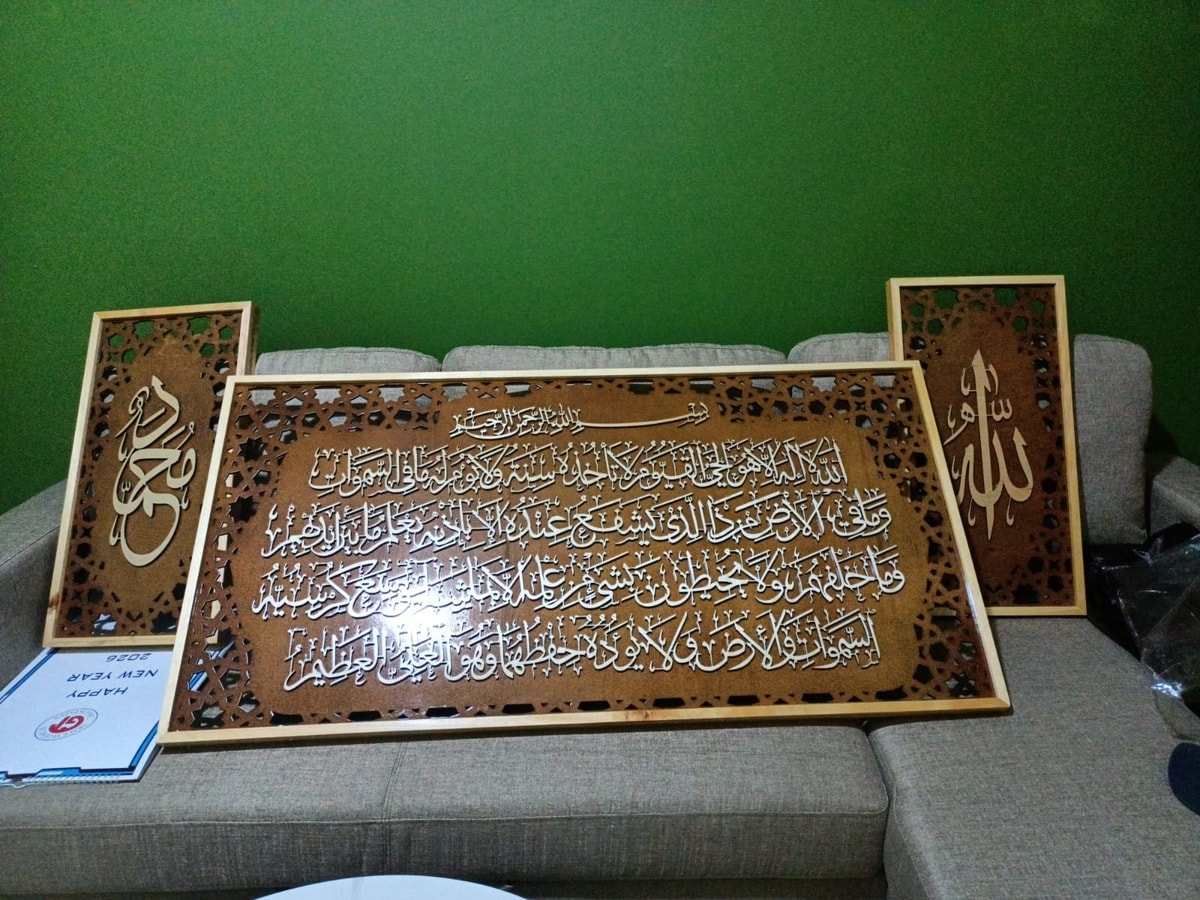 بسم الله الرحمن الرحيم
الله لا إله إلا هو الحي القيوم لا تأخذه سنة ولا نوم له ما في السموات
وما في الأرض من ذا الذي يشفع عنده إلا بإذنه يعلم ما بين أيديهم
وما خلفهم ولا يحيطون بشيء من علمه إلا بما شاء وسع كرسيه
السموات والأرض ولا يؤده حفظهما وهو العلي العظيم
الله
محمد
HAPPY
NEW YEAR
2026